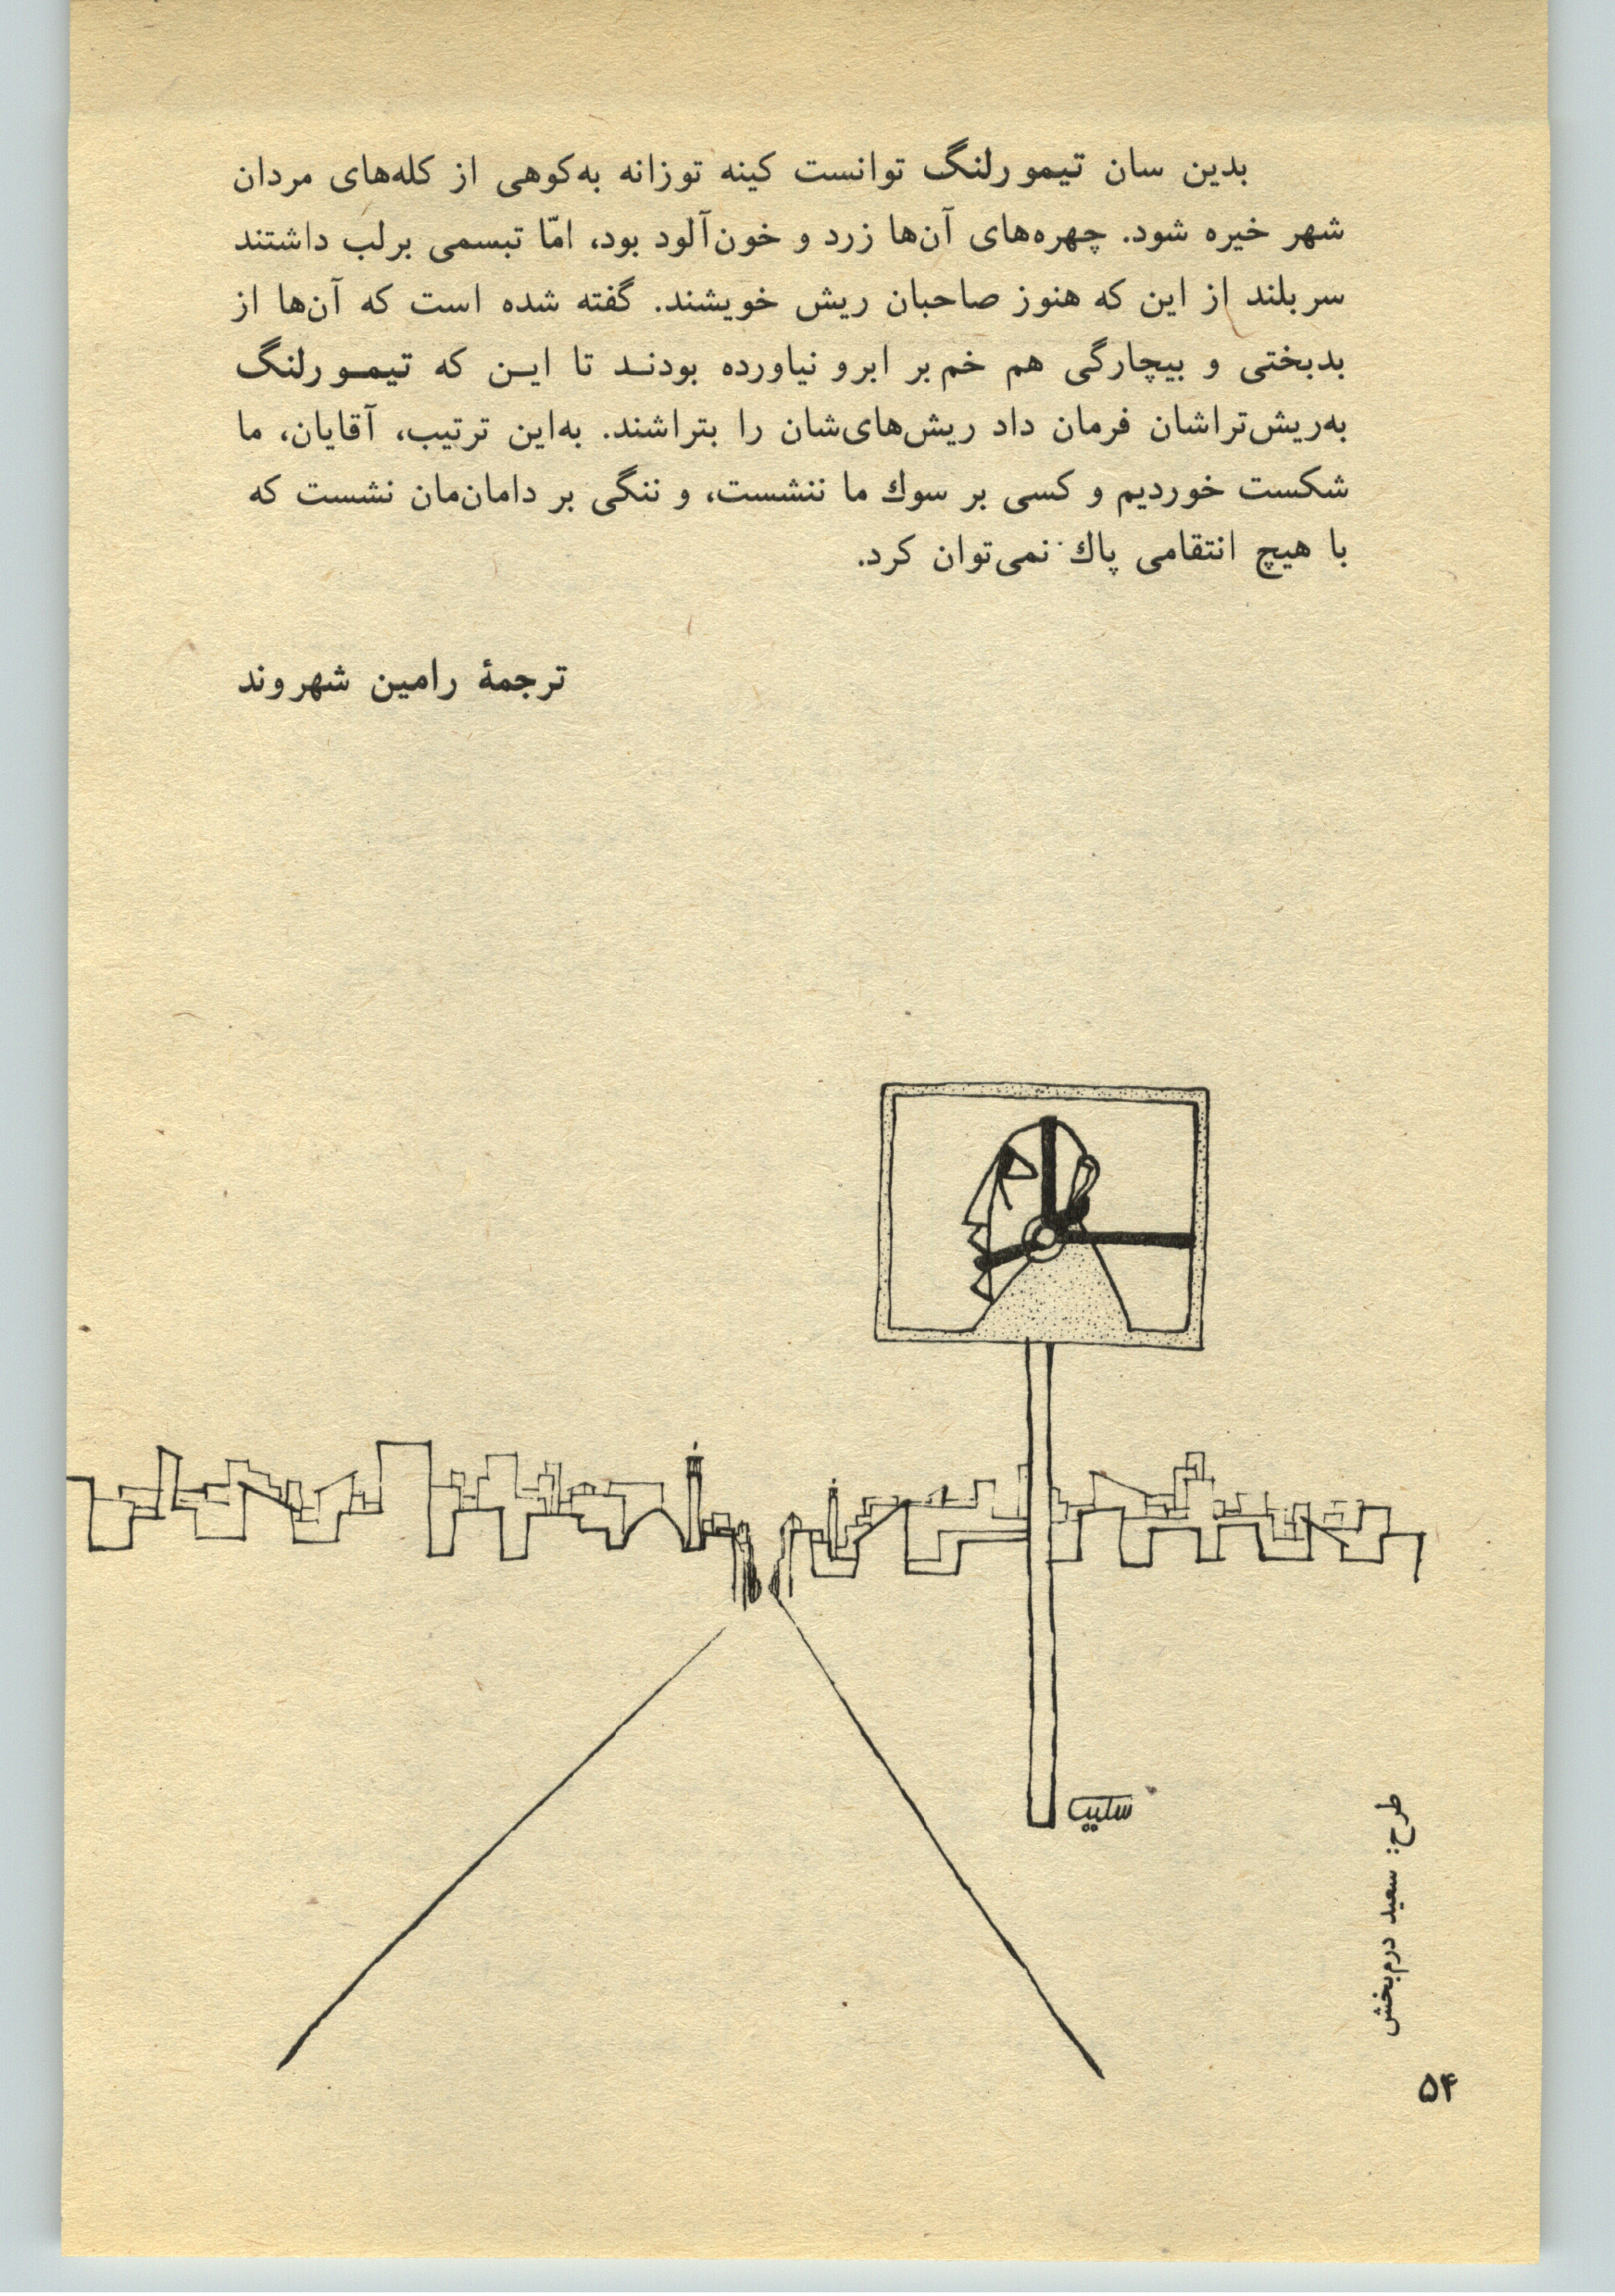 بدین سان تیمورلنگ توانست کینه توزانه به‌کوهی از کله‌های مردان
شهر خیره شود. چهره‌های آن‌ها زرد و خون‌آلود بود، امّا تبسمی برلب داشتند
سربلند از این که هنوز صاحبان ریش خویشند. گفته شده است که آن‌ها از
بدبختی و بیچارگی هم خم بر ابرو نیاورده بودنـد تا ایـن که تیمـورلنگ
به‌ریش‌تراشان فرمان داد ریش‌های‌شان را بتراشند. به‌این ترتیب، آقایان، ما
شکست خوردیم و کسی بر سوك ما ننشست، و ننگی بر دامان‌مان نشست که
با هیچ انتقامی پاك نمی‌توان کرد.
ترجمهٔ رامین شهروند
طرح: سعید درم‌بخش
۵۴